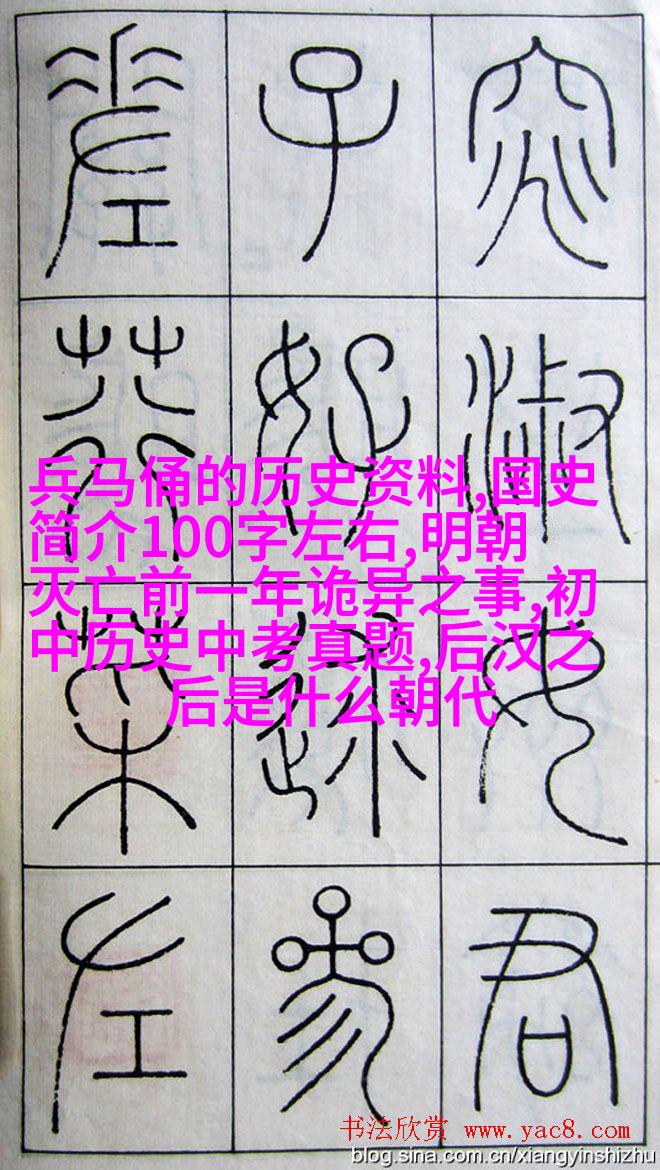 窕淑女君
子好逑參
差荇菜左
兵马俑的历史资料,国史
简介100字左右,明朝
灭亡前一年诡异之事,初
中历史中考真题,后汉之
后是什么朝代
书法欣赏 www.yac8.com
blog.sina.com.cn/xiangyinshizhu